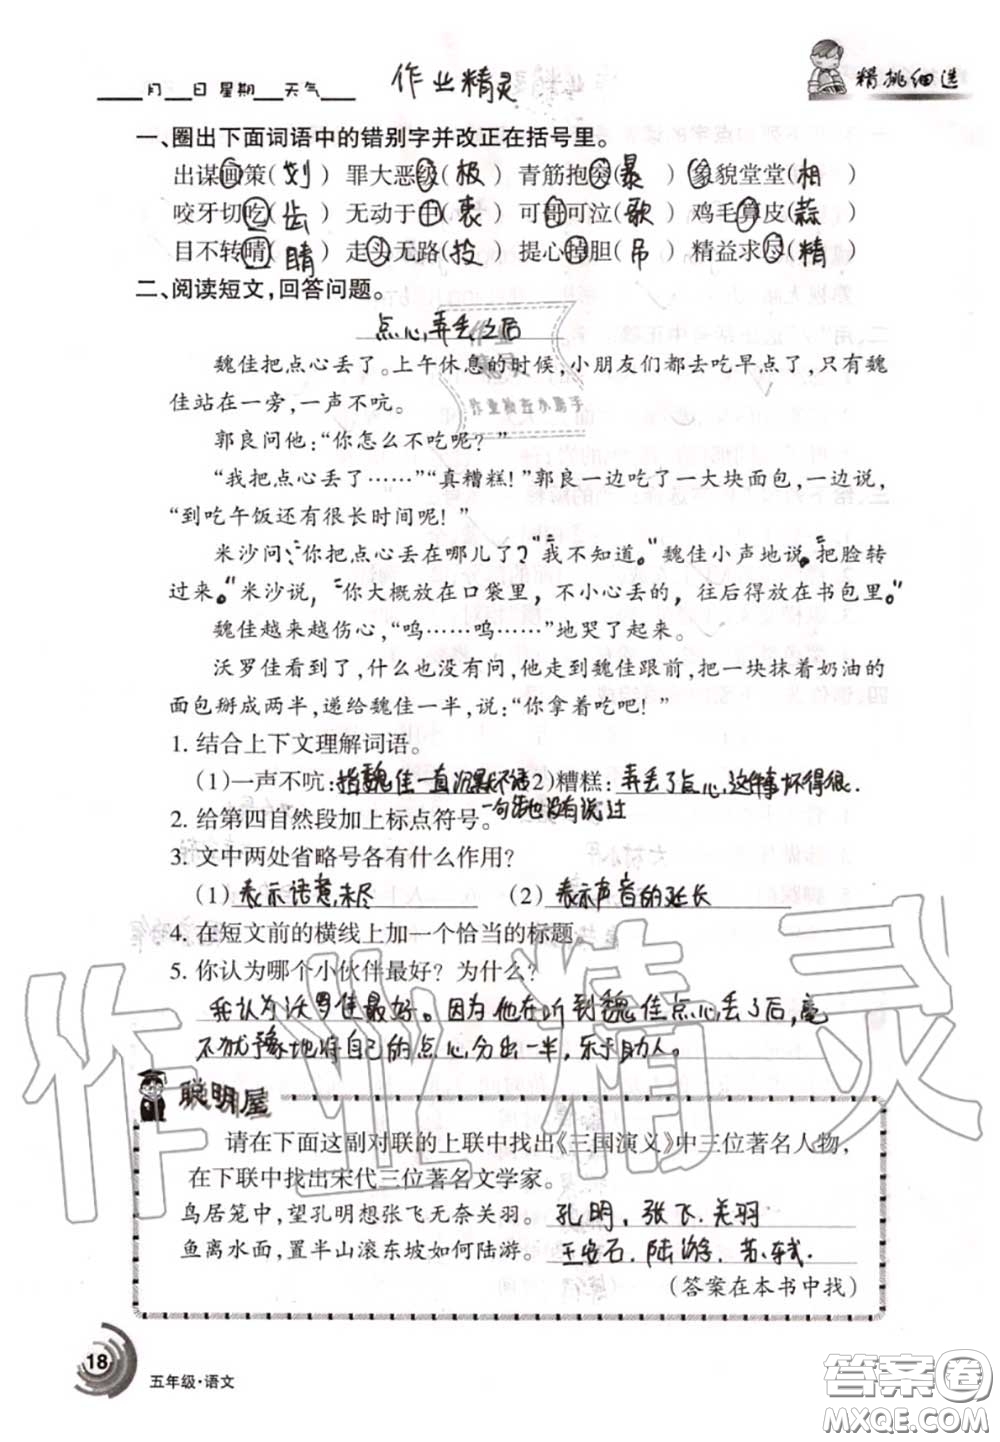 ____月__日 星期__天气___
作业精灵
精挑细选
一、圈出下面词语中的错别字并改正在括号里。
出谋画策( 划 ) 罪大恶级( 极 ) 青筋抱突( 暴 ) 象貌堂堂( 相 )
咬牙切吃( 齿 ) 无动于中( 衷 ) 可哥可泣( 歌 ) 鸡毛算皮( 蒜 )
目不转晴( 睛 ) 走头无路( 投 ) 提心掉胆( 吊 ) 精益求尽( 精 )
二、阅读短文,回答问题。
点心弄丢之后
魏佳把点心丢了。上午休息的时候,小朋友们都去吃早点了,只有魏
佳站在一旁,一声不吭。
郭良问他:“你怎么不吃呢？”
“我把点心丢了……”“真糟糕!”郭良一边吃了一大块面包,一边说,
“到吃午饭还有很长时间呢!”
米沙问:“你把点心丢在哪儿了?”“我不知道。”魏佳小声地说,把脸转
过来。”米沙说,“你大概放在口袋里,不小心丢的,往后得放在书包里。”
魏佳越来越伤心,“呜……呜……”地哭了起来。
沃罗佳看到了,什么也没有问,他走到魏佳跟前,把一块抹着奶油的
面包掰成两半,递给魏佳一半,说:“你拿着吃吧!”
1. 结合上下文理解词语。
(1)一声不吭:指魏佳一直沉默不语 (2)糟糕:弄丢了点心,这件事坏得很.
一句话也没有说过
2. 给第四自然段加上标点符号。
3. 文中两处省略号各有什么作用?
(1) 表示语意未尽 (2) 表示声音的延长
4. 在短文前的横线上加一个恰当的标题。
5. 你认为哪个小伙伴最好？为什么?
我认为沃罗佳最好。因为他在听到魏佳点心丢了后,毫
不犹豫地将自己的点心分出一半,乐于助人。
聪明屋
请在下面这副对联的上联中找出《三国演义》中三位著名人物,
在下联中找出宋代三位著名文学家。
鸟居笼中,望孔明想张飞无奈关羽。 孔明, 张飞, 关羽
鱼离水面,置半山滚东坡如何陆游。 王安石, 陆游, 苏轼,
(答案在本书中找)
18
五年级·语文
作业精灵
答案圈
MXQE.COM